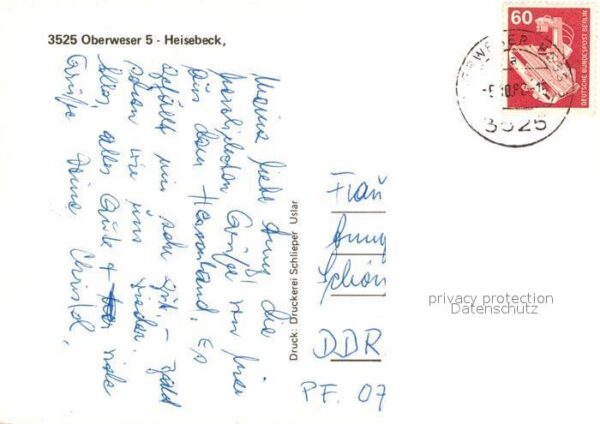 3525 Oberweser 5 - Heisebeck,
Meine liebe Anny! die
herzlichsten Grüße von hier
aus dem Hessenland. Es
gefällt mir sehr gut, –
schon wie uns wieder.
Alles, alles Gute + viele
Grüße Deine Christel.
Druck: Druckerei Schlieper Uslar
60
DEUTSCHE BUNDESPOST BERLIN
OBERWESER
3525
Frau
Anny
Schön
DDR
PF. 07
privacy protection
Datenschutz